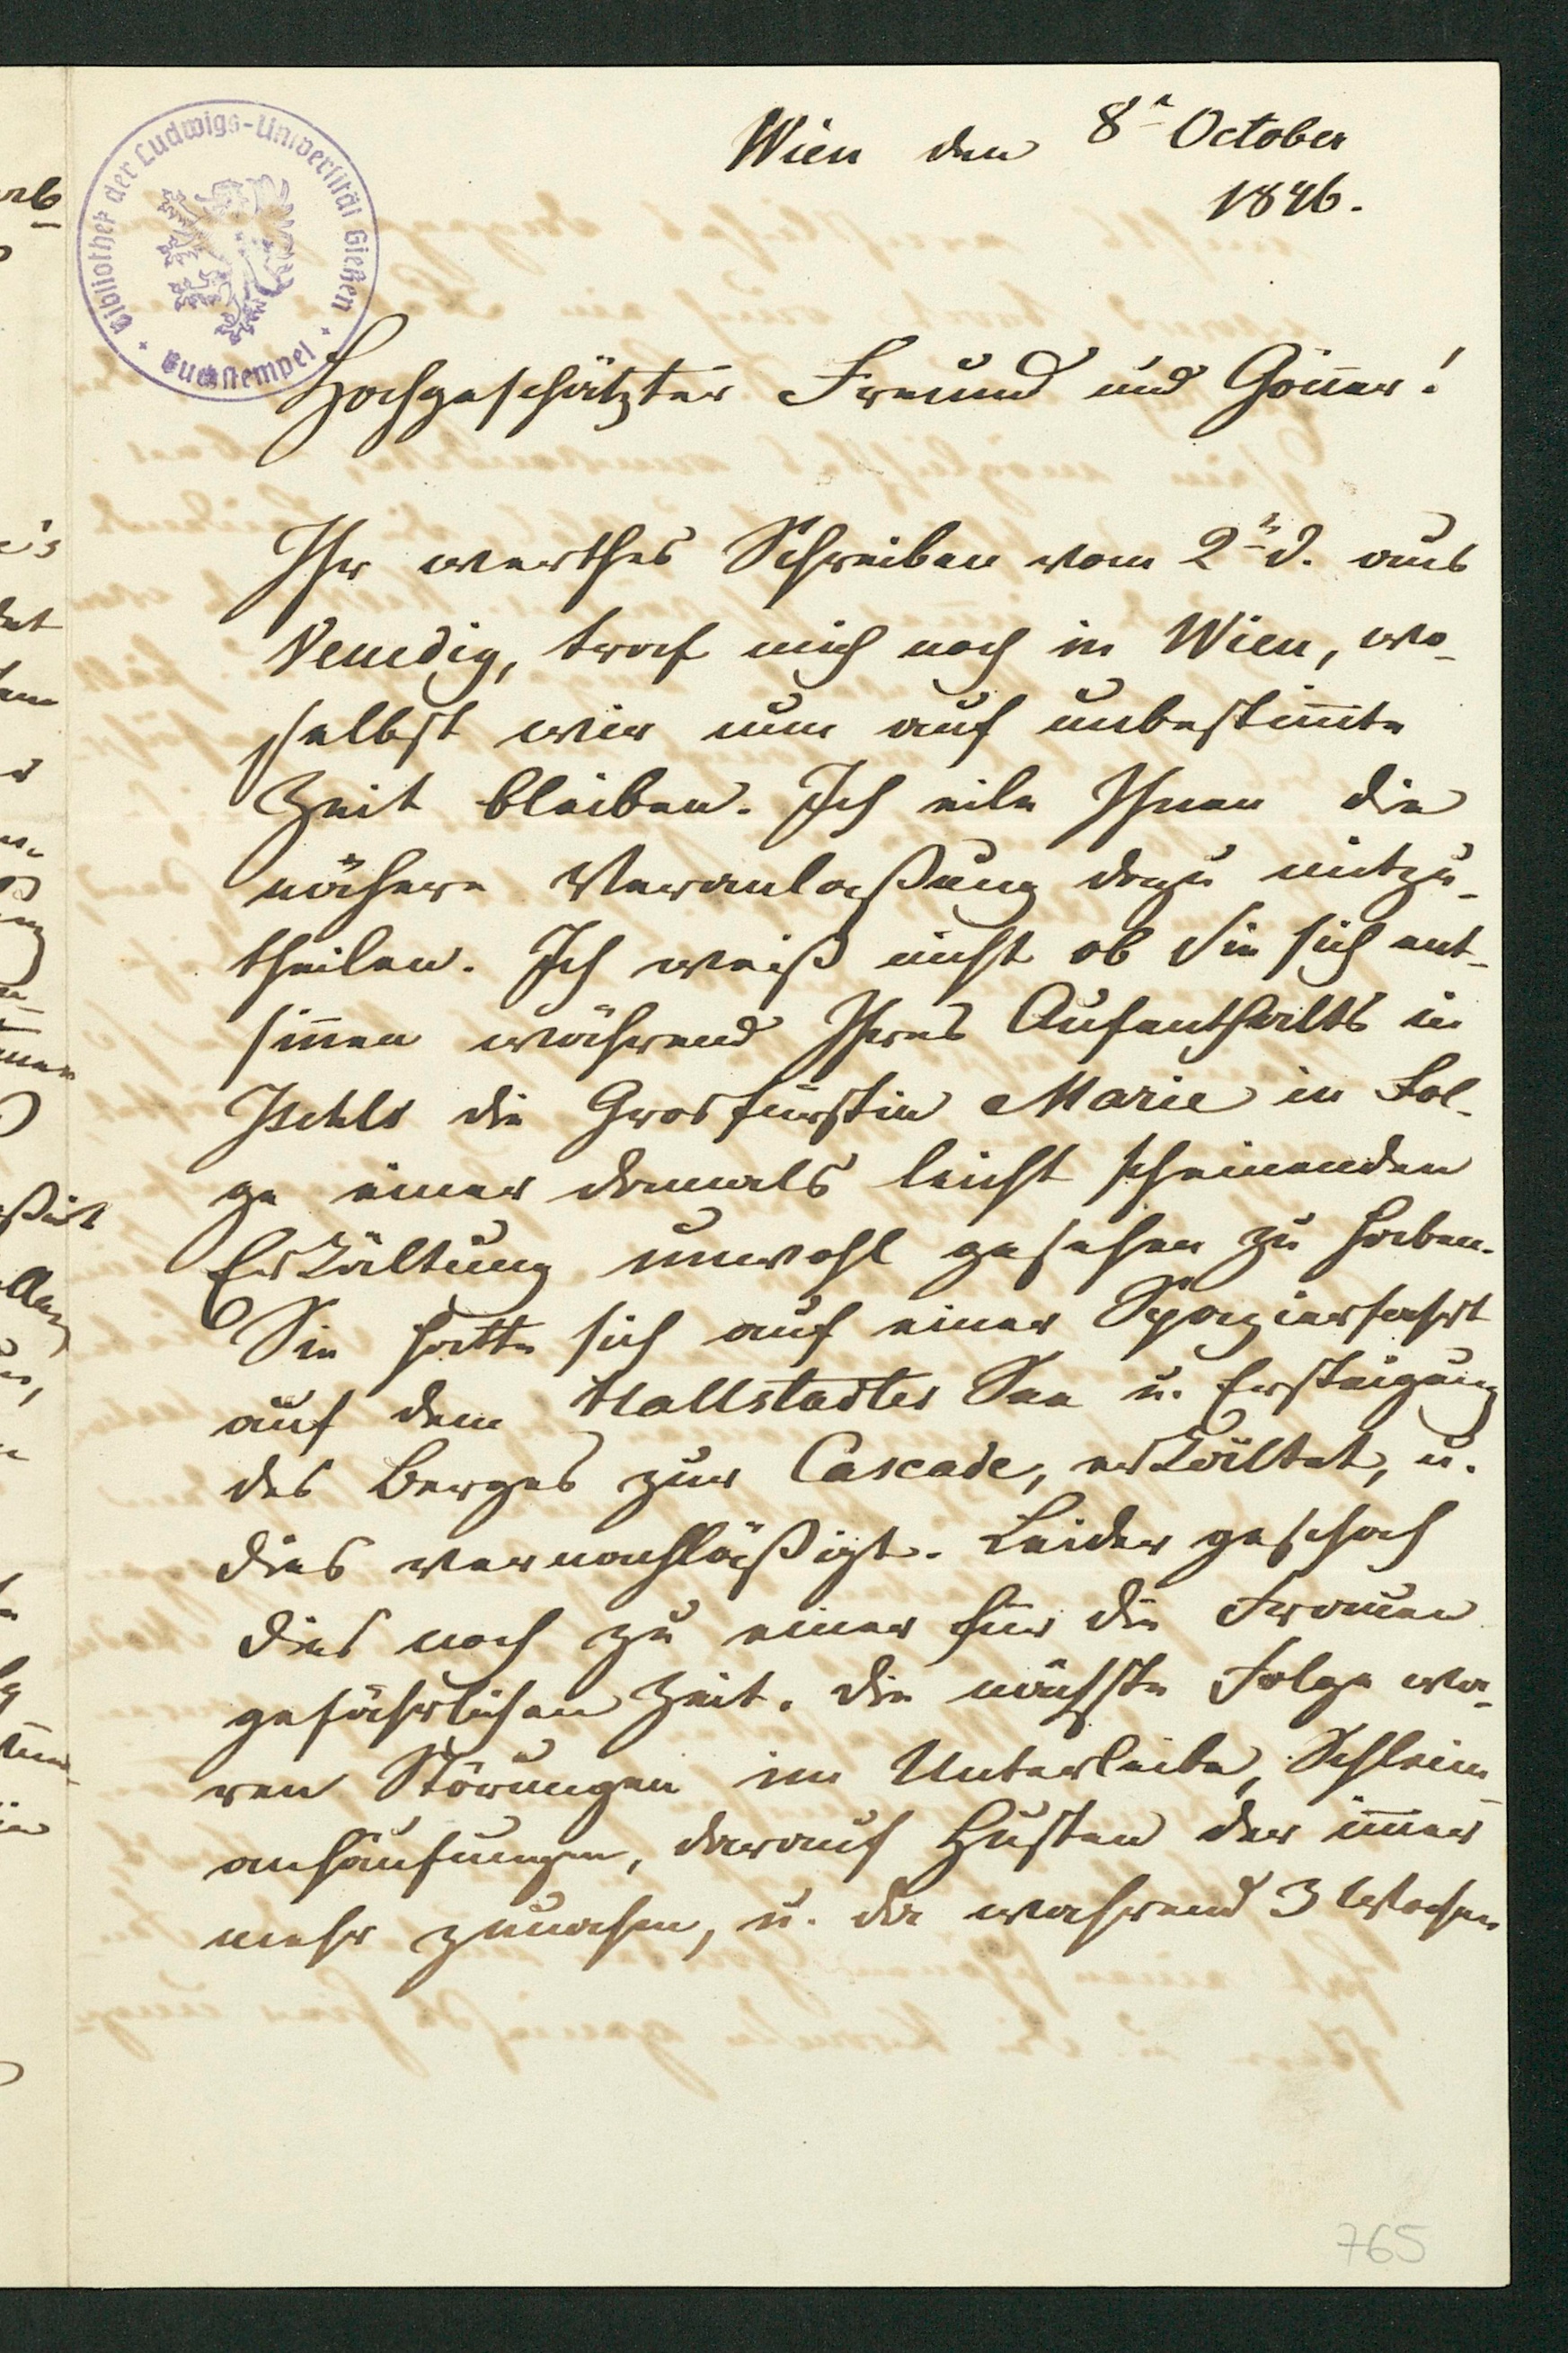 Bibliothek der Ludwigs-Universität Gießen
Buchstempel
Wien den 8n October
1846.
Hochgeschätzter Freund und Göner!
Ihr werthes Schreiben vom 2n d. aus
Venedig, traf mich noch in Wien, wo-
selbst wir nun auf unbestimte
Zeit bleiben. Ich eile Ihnen die
nähere Veranlaßung dazu mitzu-
theilen. Ich weiß nicht ob Sie sich ent-
sinen während Ihres Aufenthalts in
Ischls die Grosfürstin Marie in Fol-
ge einer damals leicht scheinenden
Erkältung unwohl gesehen zu haben.
Sie hatte sich auf einer Spazierfahrt
auf dem Hallstadter See u. Ersteigung
des Berges zur Cascade, erkältet, u.
dies vernachläßigt. Leider geschah
dies noch zu einer für die Frauen
gefährlichen Zeit. Die nächste Folge wa-
ren Störungen im Unterleibe, Schleim-
anhäufungen, darauf Husten der imer
mehr zunahm, u. da während 3 Wochen
765